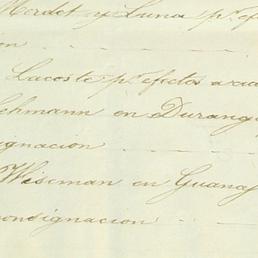 y Luna p.r
ion
Lacoste p.r efectos a
Lehmann en Durang
ignacion
Wiseman en Guana
consignacion